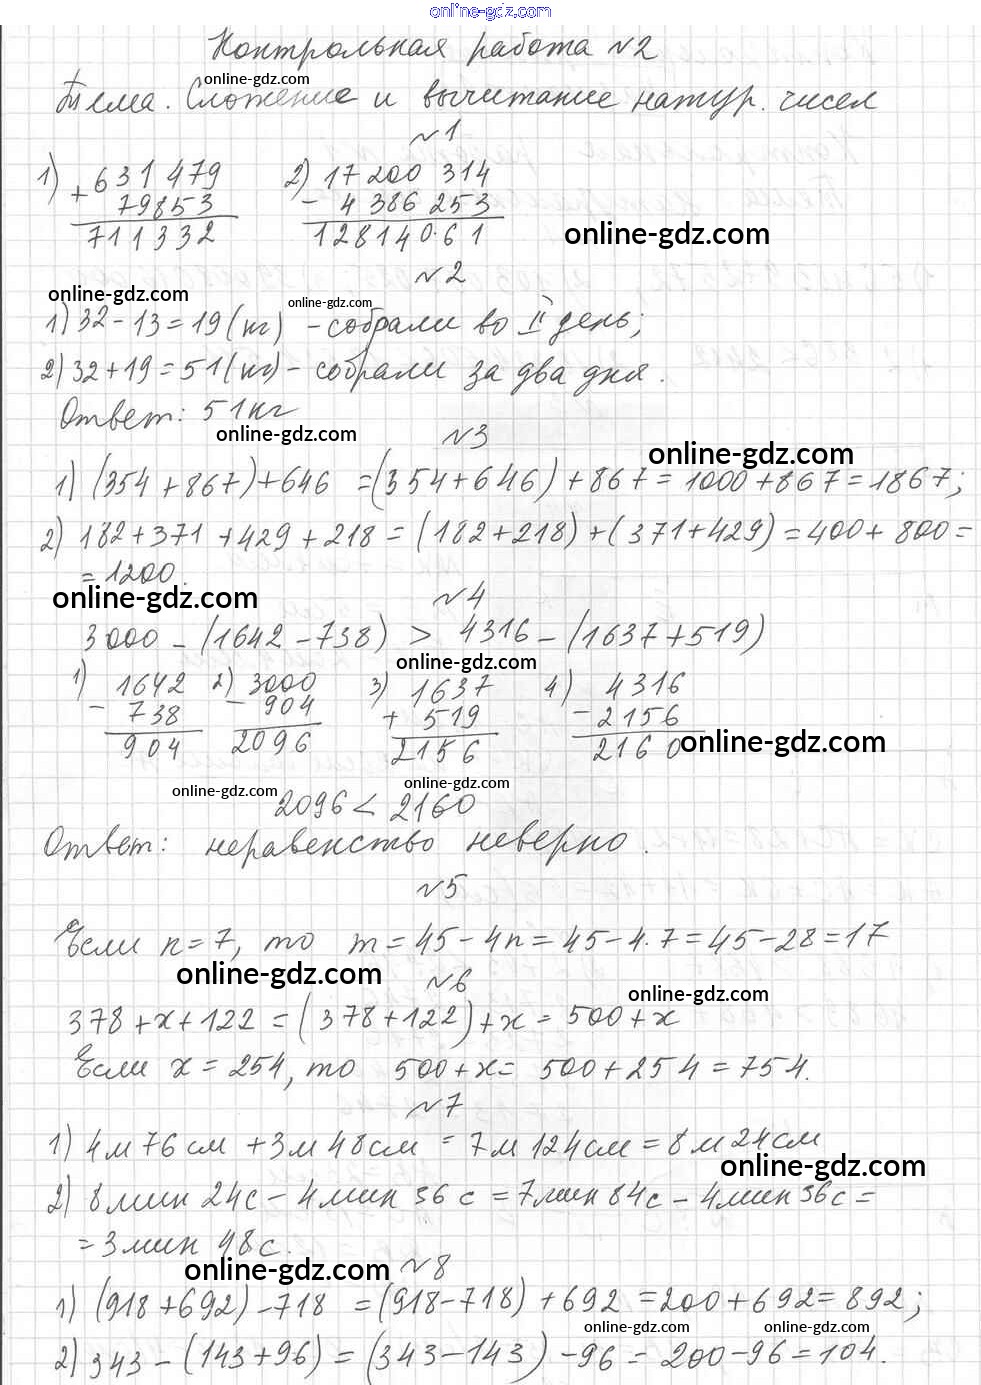 online-gdz.com
Контрольная работа №2
online-gdz.com
Тема. Сложение и вычитание натур. чисел
№1
1) + 631 479 2) 17 200 314
79853 - 4 386 253
711332 12814061
online-gdz.com
№2
online-gdz.com online-gdz.com
1) 32-13=19(кг) - собрали во II день;
2) 32+19=51(кг) - собрали за два дня.
Ответ: 51кг
online-gdz.com
№3
online-gdz.com
1) (354+867)+646 =(354+646)+867=1000+867=1867;
2) 182+371+429+218=(182+218)+(371+429)=400+800=
=1200.
online-gdz.com
№4
3000-(1642-738) > 4316-(1637+519)
online-gdz.com
1) 1642 2) 3000 3) 1637 4) 4316
- 738 - 904 + 519 - 2156
904 2096 2156 2160
online-gdz.com
online-gdz.com online-gdz.com
2096 < 2160
Ответ: неравенство неверно.
№5
Если n=7, то m=45-4n=45-4·7=45-28=17
online-gdz.com
№6
online-gdz.com
378+x+122=(378+122)+x=500+x
Если x=254, то 500+x=500+254=754.
№7
1) 4м 76см + 3м 48см = 7м 124см = 8м 24см
online-gdz.com
2) 8мин 24с - 4мин 36с = 7мин 84с - 4мин 36с =
=3мин 48с.
online-gdz.com
№8
1) (918+692)-718 =(918-718)+692=200+692=892;
online-gdz.com online-gdz.com
2) 343-(143+96)=(343-143)-96=200-96=104.